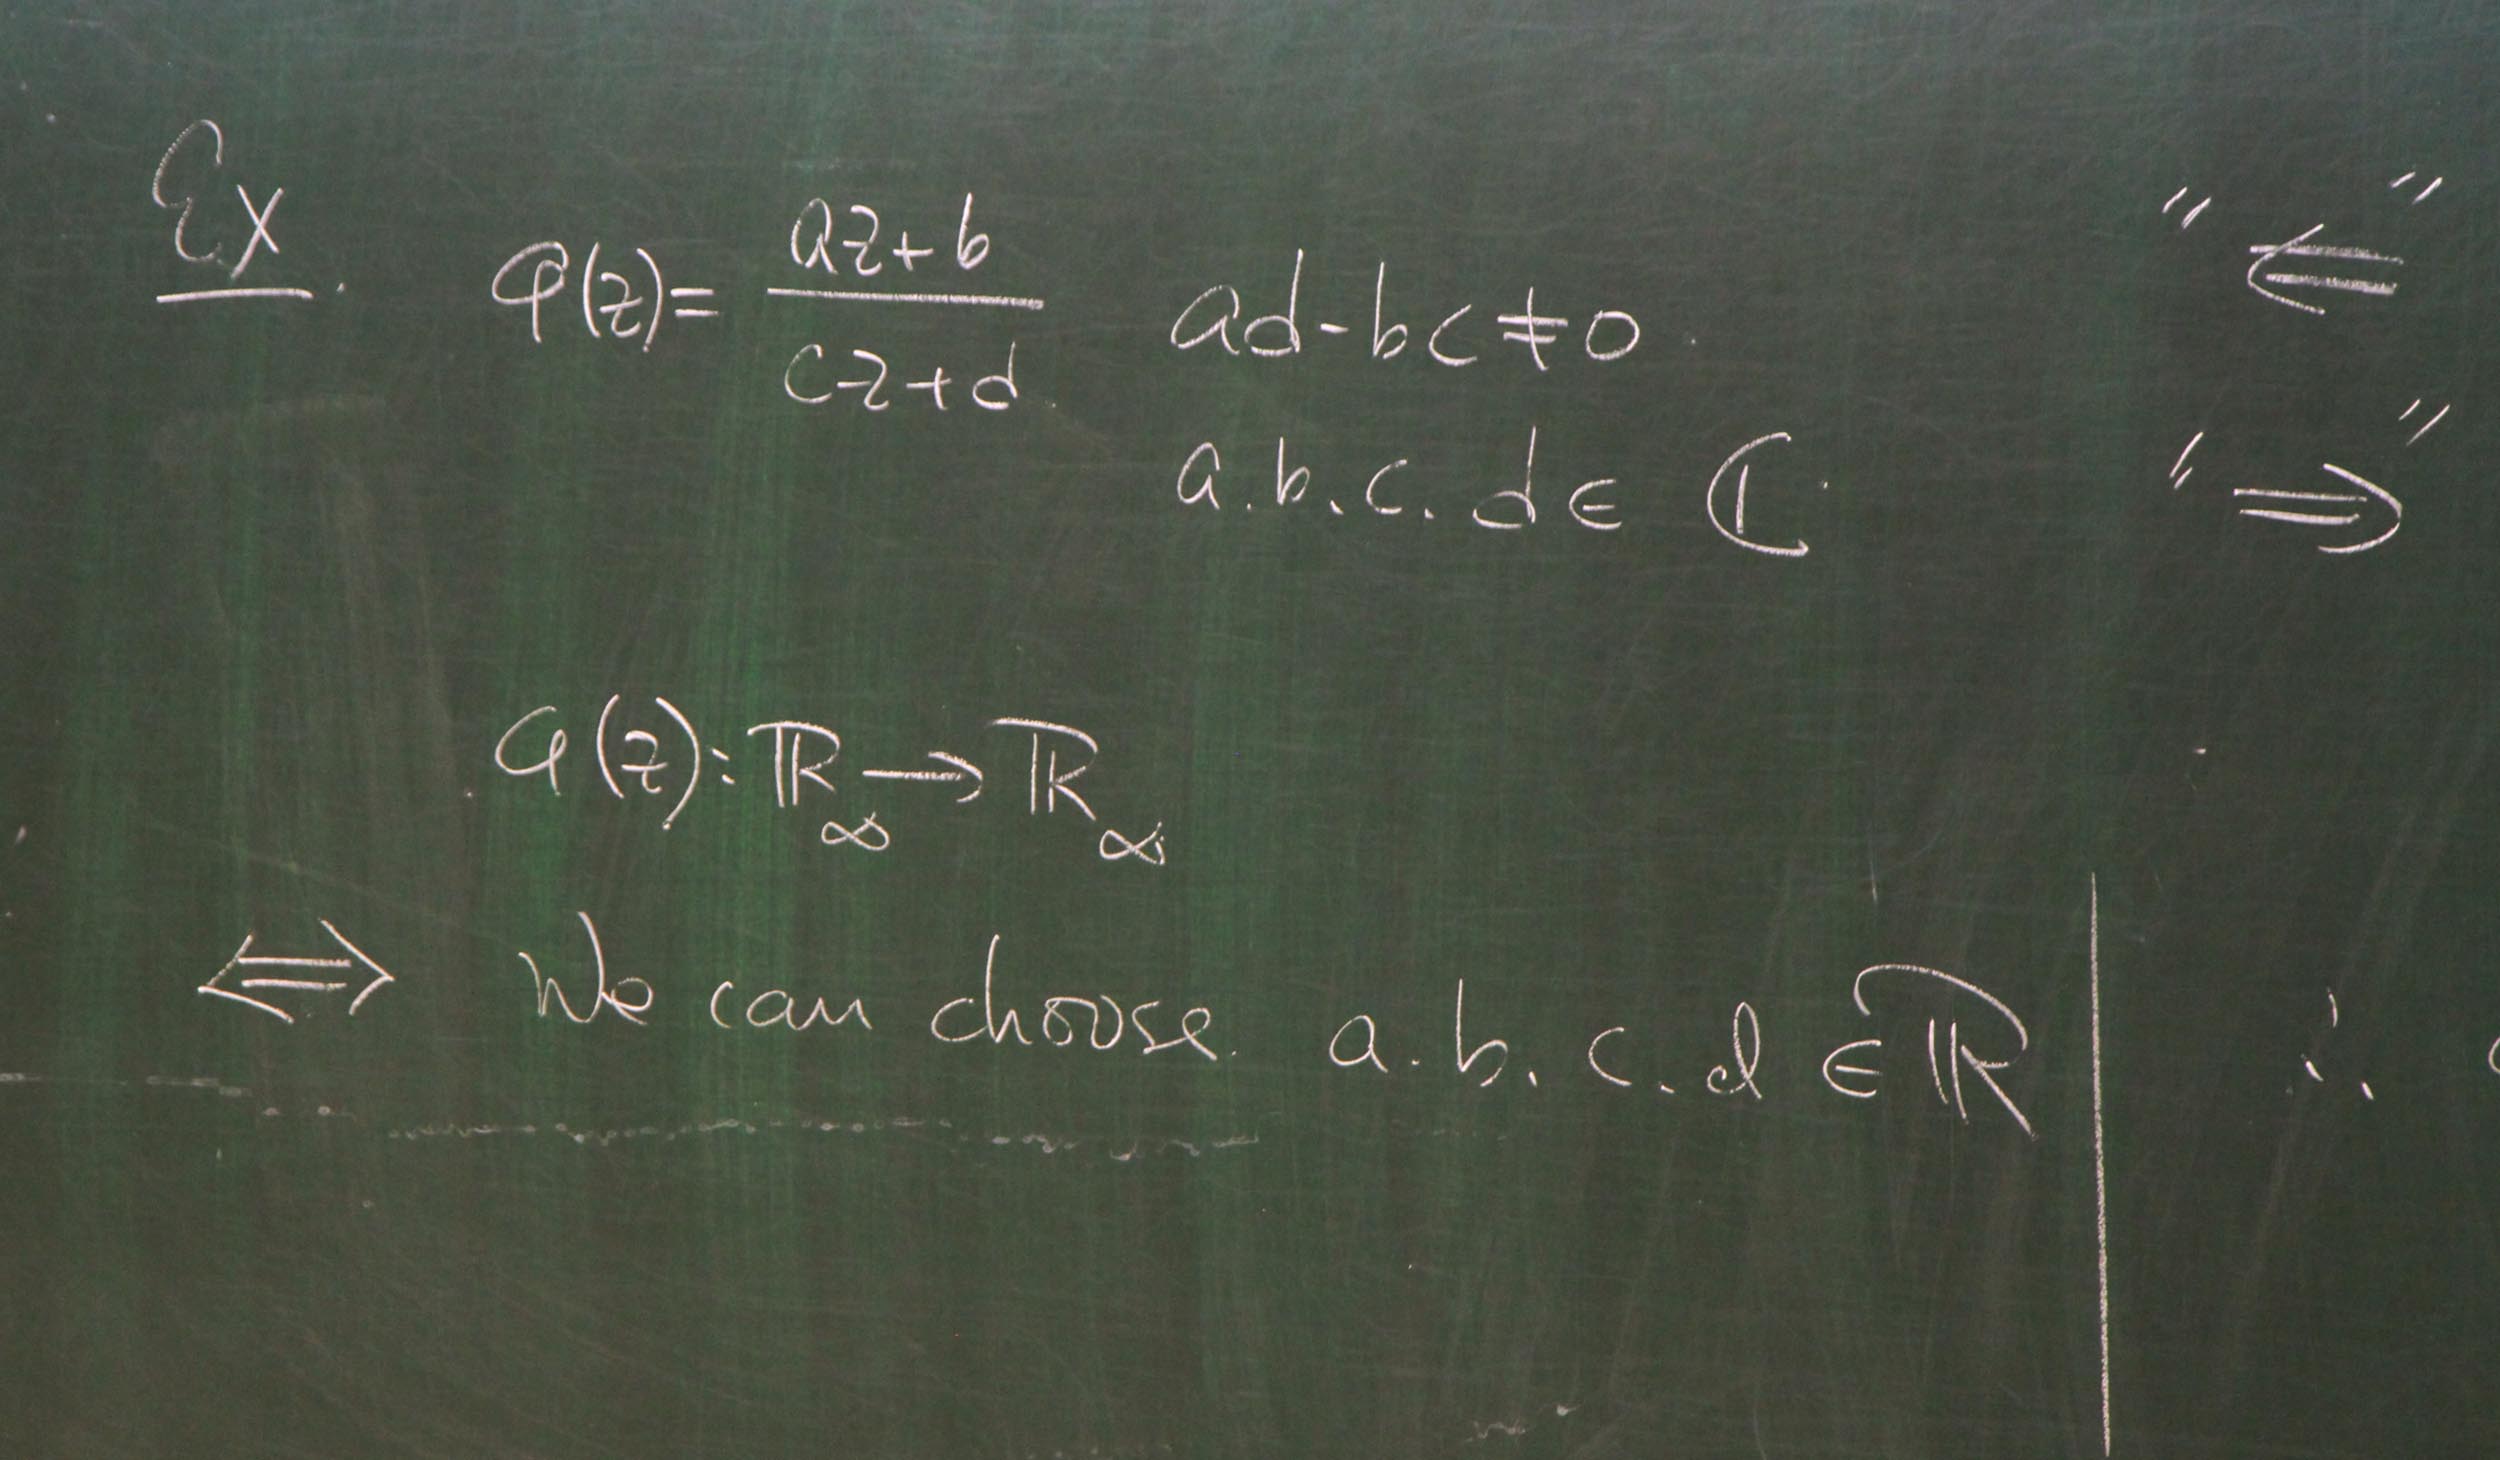 Ex. φ(z) = (az+b)/(cz+d) ad-bc≠0.
a.b.c.d ∈ ℂ
φ(z): ℝ∞ → ℝ∞
⇔ We can choose a.b.c.d ∈ ℝ
"⇐"
"⇒"
∴